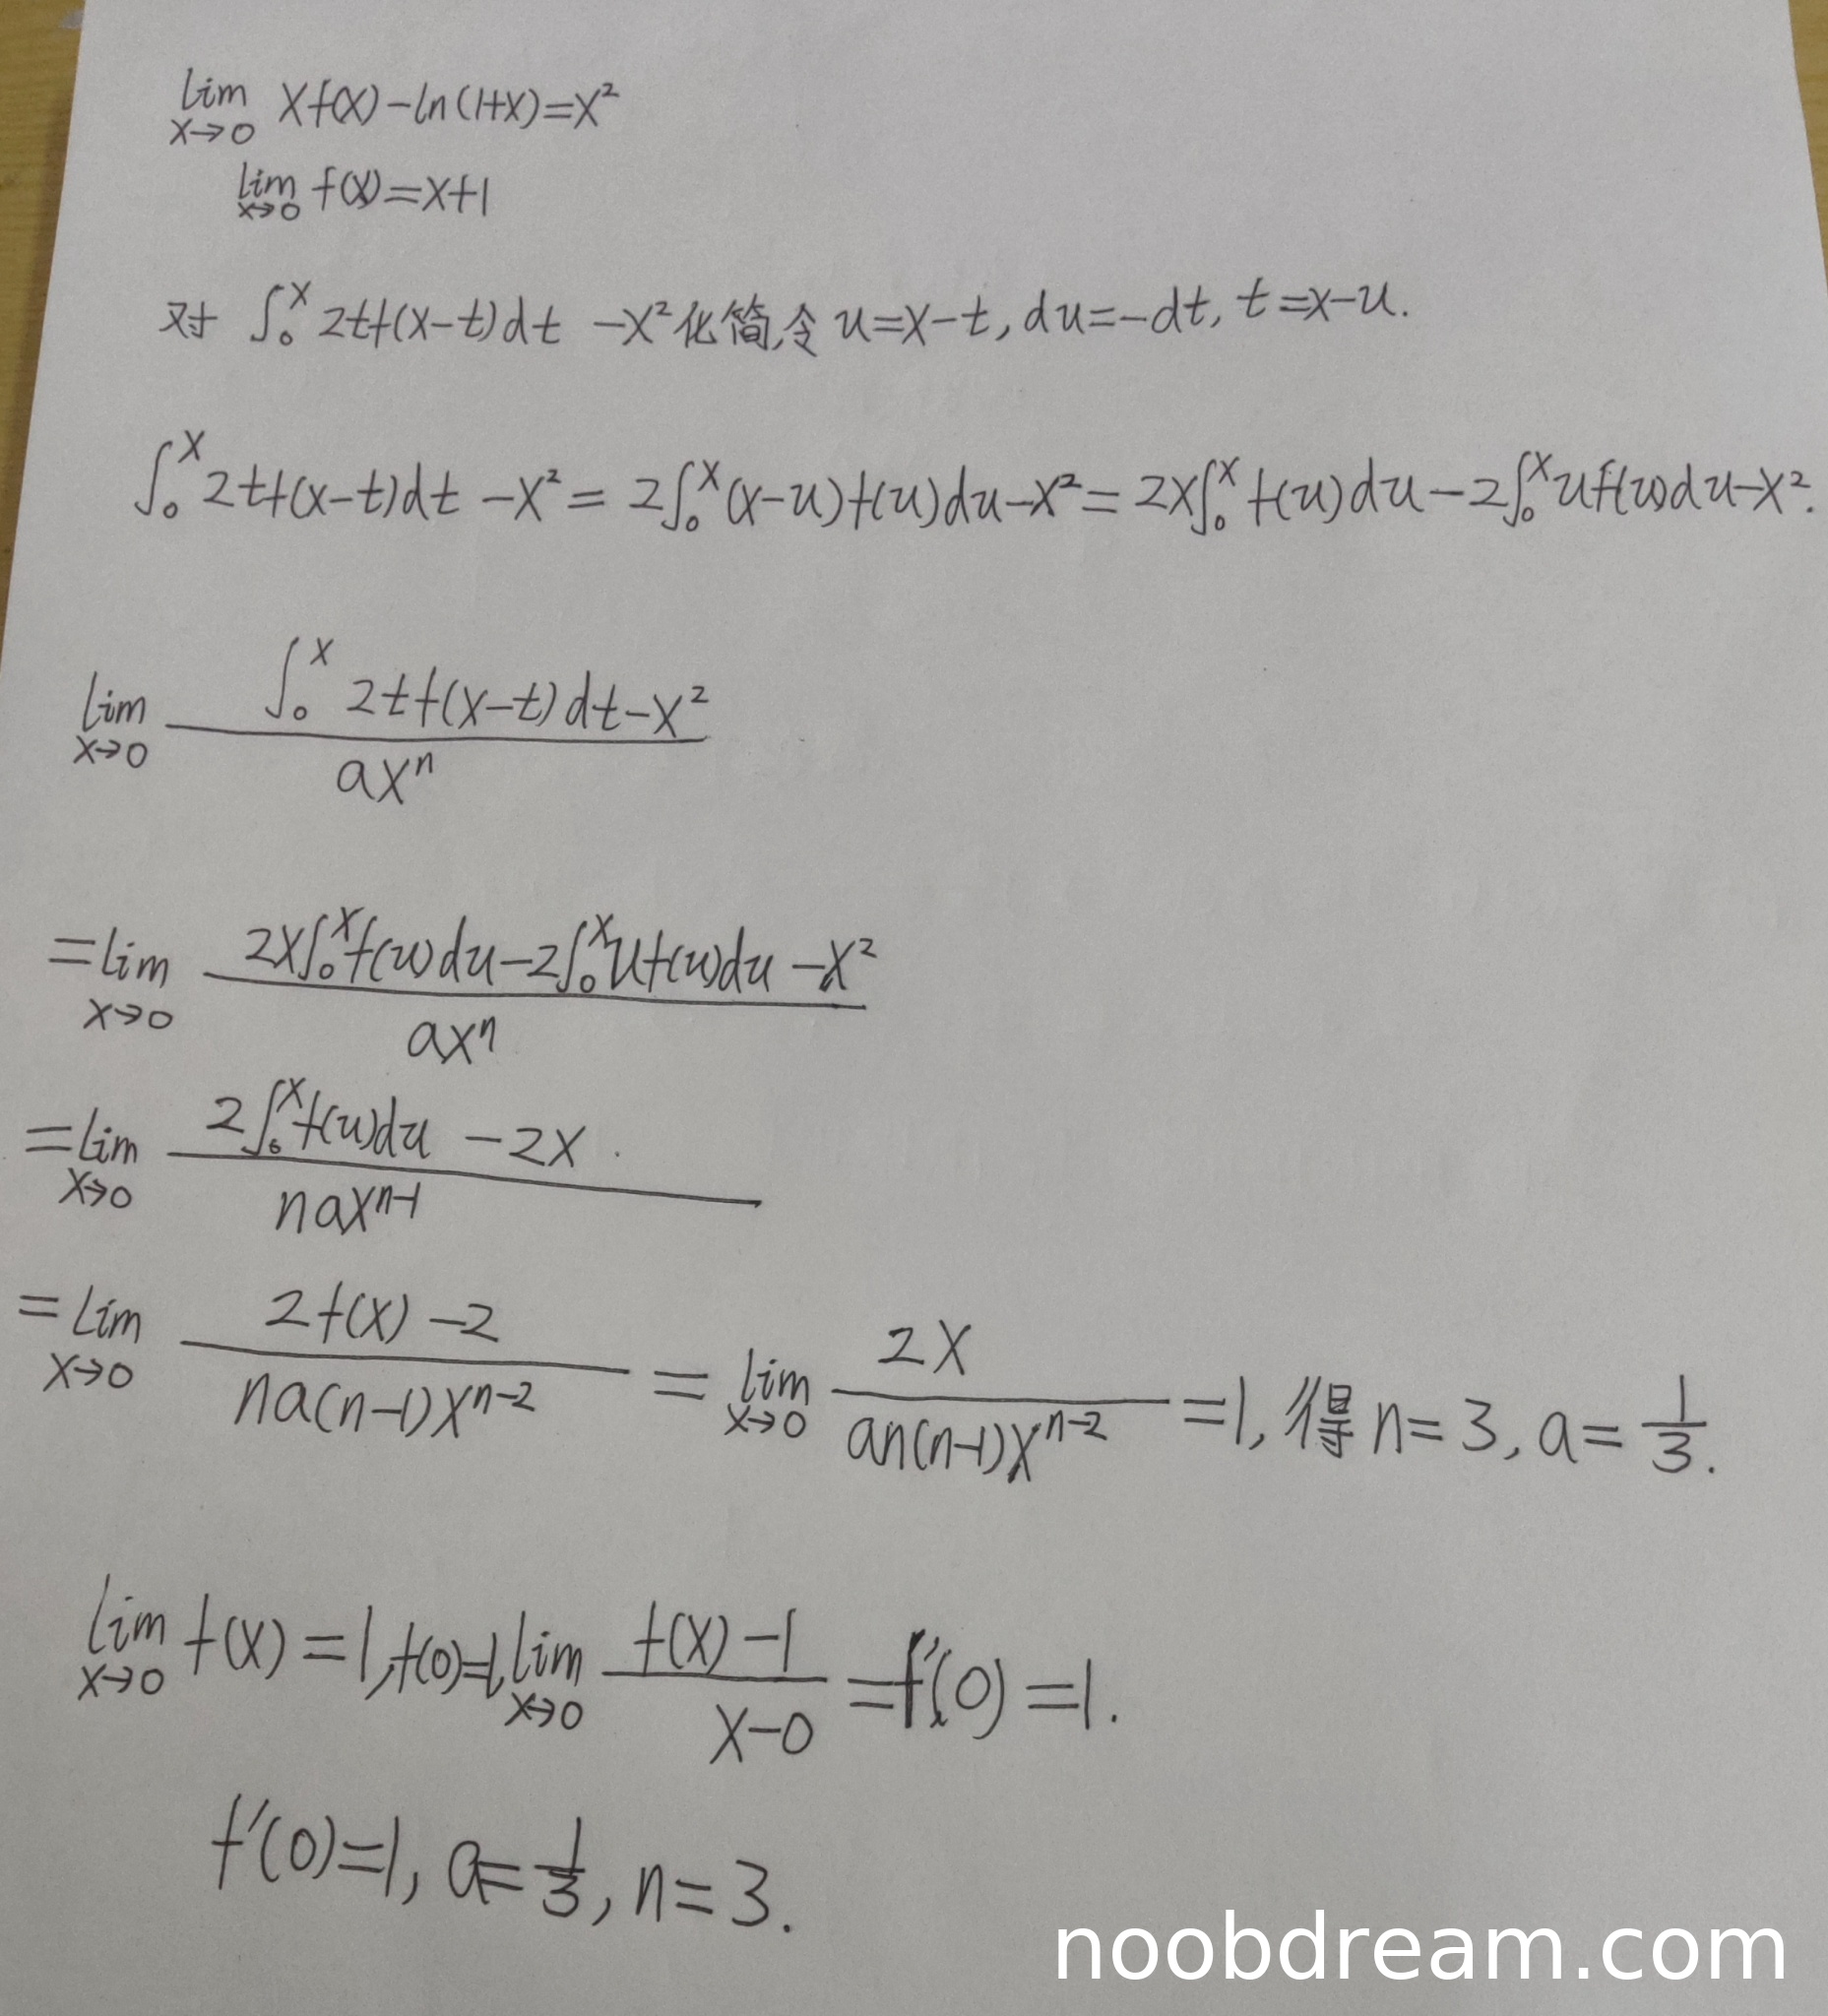 lim x→0 xf(x)-ln(1+x)=x²
lim x→0 f(x)=x+1
对 ∫₀ˣ 2tf(x-t)dt -x²化简,令 u=x-t, du=-dt, t=x-u.
∫₀ˣ 2tf(x-t)dt -x² = 2∫₀ˣ(x-u)f(u)du-x² = 2x∫₀ˣ f(u)du-2∫₀ˣ uf(u)du-x².
lim x→0 (∫₀ˣ 2tf(x-t)dt-x²)/(axⁿ)
=lim x→0 (2x∫₀ˣf(u)du-2∫₀ˣuf(u)du-x²)/(axⁿ)
=lim x→0 (2∫₀ˣf(u)du -2x)/(naxⁿ⁻¹)
=lim x→0 (2f(x)-2)/(na(n-1)xⁿ⁻²) = lim x→0 (2x)/(an(n-1)xⁿ⁻²) =1, 得 n=3, a=1/3.
lim x→0 f(x)=1, f(0)=1, lim x→0 (f(x)-1)/(x-0) =f'(0)=1.
f'(0)=1, a=1/3, n=3.
noobdream.com